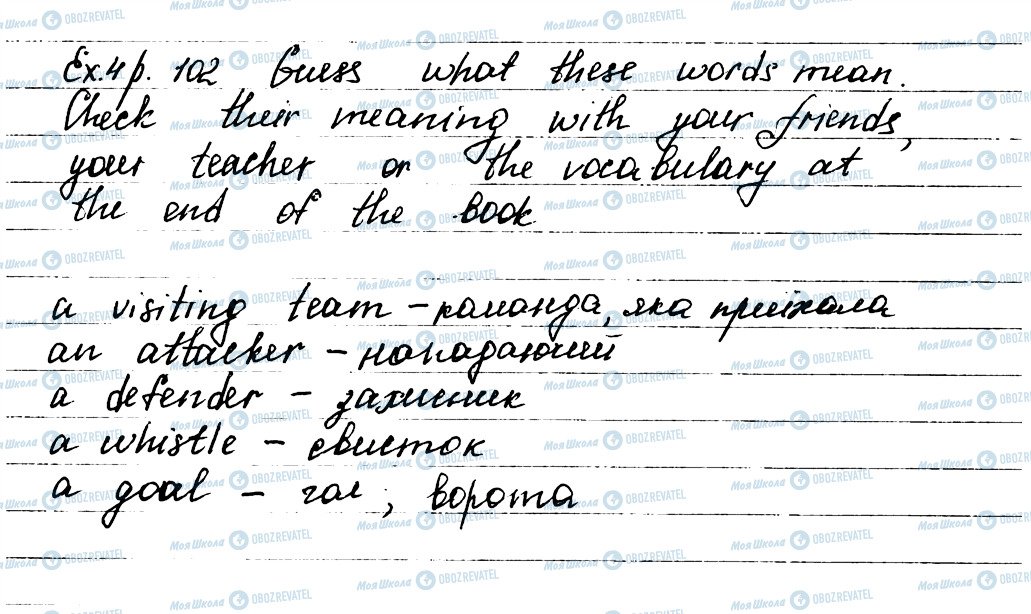 Ex.4 p. 102 Guess what these words mean.
Check their meaning with your friends,
your teacher or the vocabulary at
the end of the book
a visiting team – команда, яка приїхала
an attacker – нападаючий
a defender – захисник
a whistle – свисток
a goal – гол, ворота
Моя Школа OBOZREVATEL